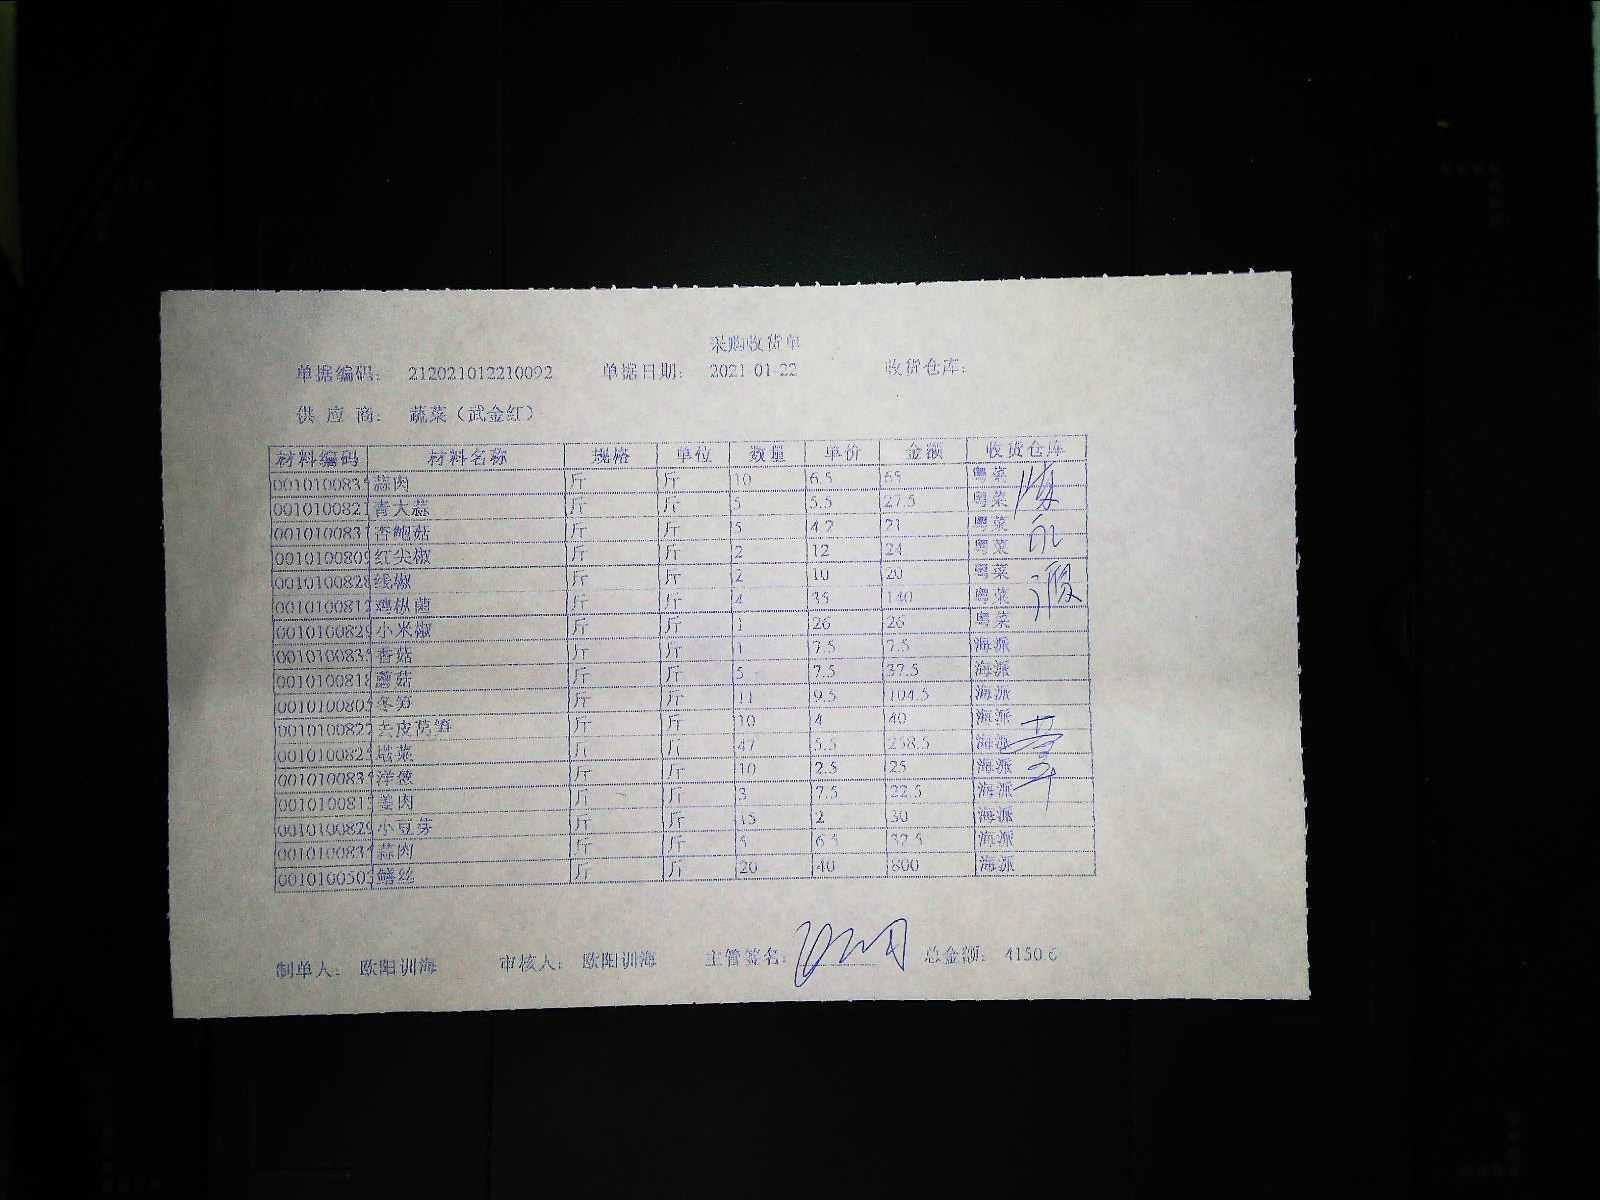 采购收货单
单据编码： 212021012210092 单据日期： 2021-01-22 收货仓库：
供 应 商： 蔬菜（武金红）
材料编码 材料名称 规格 单位 数量 单价 金额 收货仓库
001010083 蒜肉 斤 斤 10 6.5 65 粤菜
001010082 青大蒜 斤 斤 5 5.5 27.5 粤菜
001010083 杏鲍菇 斤 斤 5 4.2 21 粤菜
001010080 红尖椒 斤 斤 2 12 24 粤菜
001010082 线椒 斤 斤 2 10 20 粤菜
001010081 鸡枞菌 斤 斤 4 35 140 粤菜
001010082 小米椒 斤 斤 1 26 26 粤菜
001010083 香菇 斤 斤 1 7.5 7.5 海派
001010081 蘑菇 斤 斤 5 7.5 37.5 海派
001010080 冬笋 斤 斤 11 9.5 104.5 海派
001010082 去皮莴笋 斤 斤 10 4 40 海派
001010082 塔菜 斤 斤 47 5.5 258.5 海派
001010083 洋葱 斤 斤 10 2.5 25 海派
001010081 姜肉 斤 斤 3 7.5 22.5 海派
001010082 小豆芽 斤 斤 15 2 30 海派
001010083 蒜肉 斤 斤 5 6.5 32.5 海派
001010050 鳝丝 斤 斤 20 40 800 海派
制单人： 欧阳训海 审核人： 欧阳训海 主管签名： 总金额： 4150.6